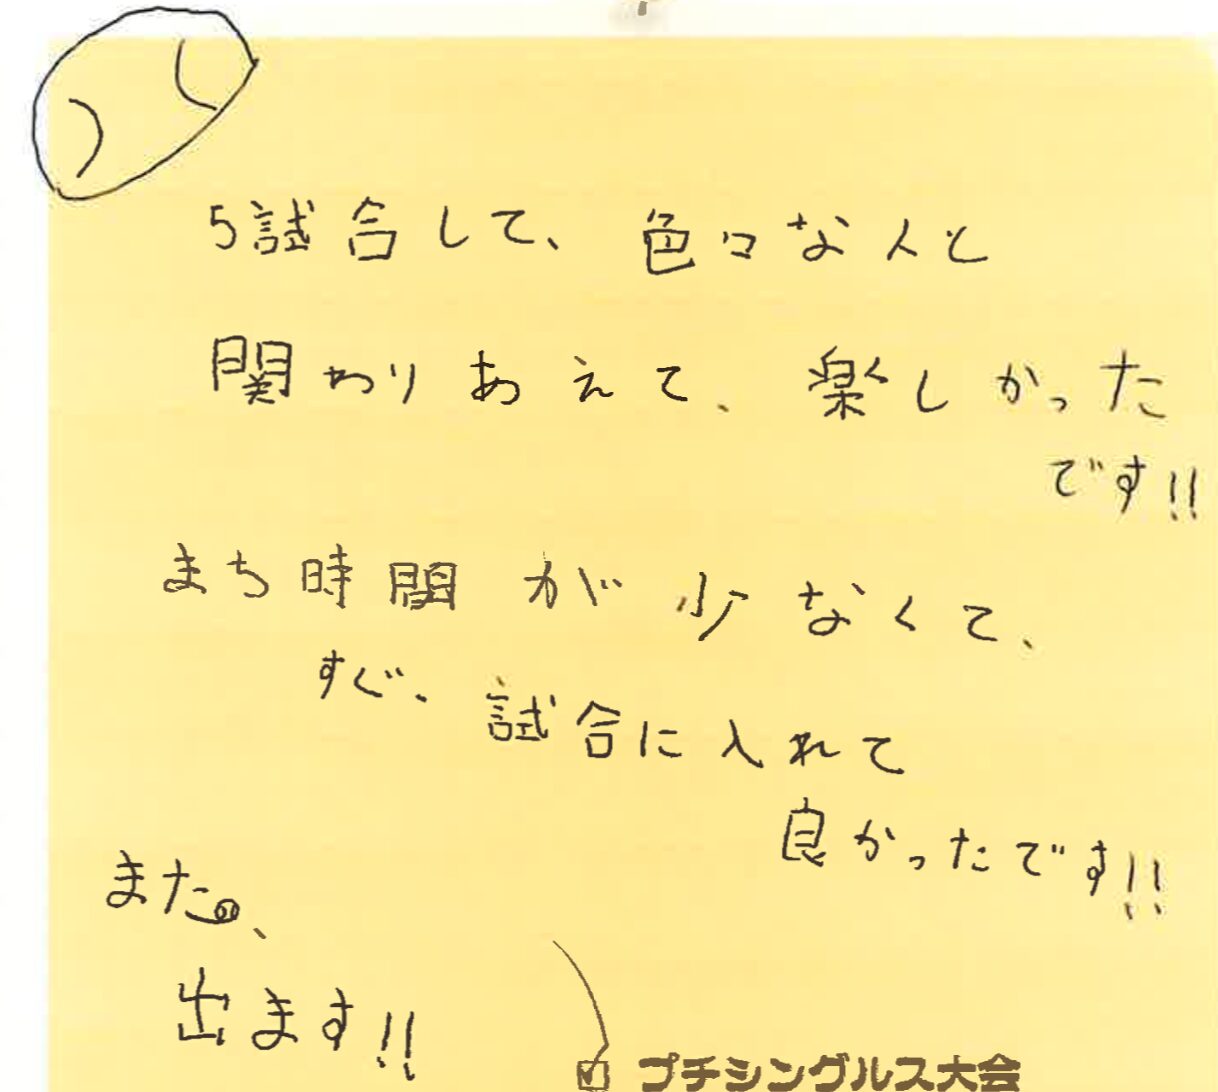 5試合して、色々な人と
関わりあえて、楽しかった
です!!
まち時間が少なくて、
すぐ、試合に入れて
良かったです!!
また、
出ます!!
☑ プチシングルス大会